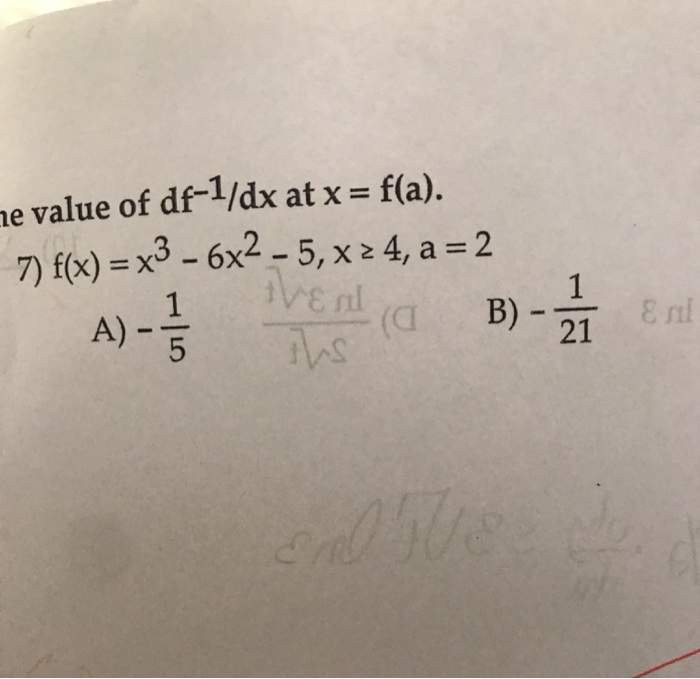 value of df⁻¹/dx at x = f(a).
7) f(x) = x³ - 6x² - 5, x ≥ 4, a = 2
A) - 1/5 B) - 1/21